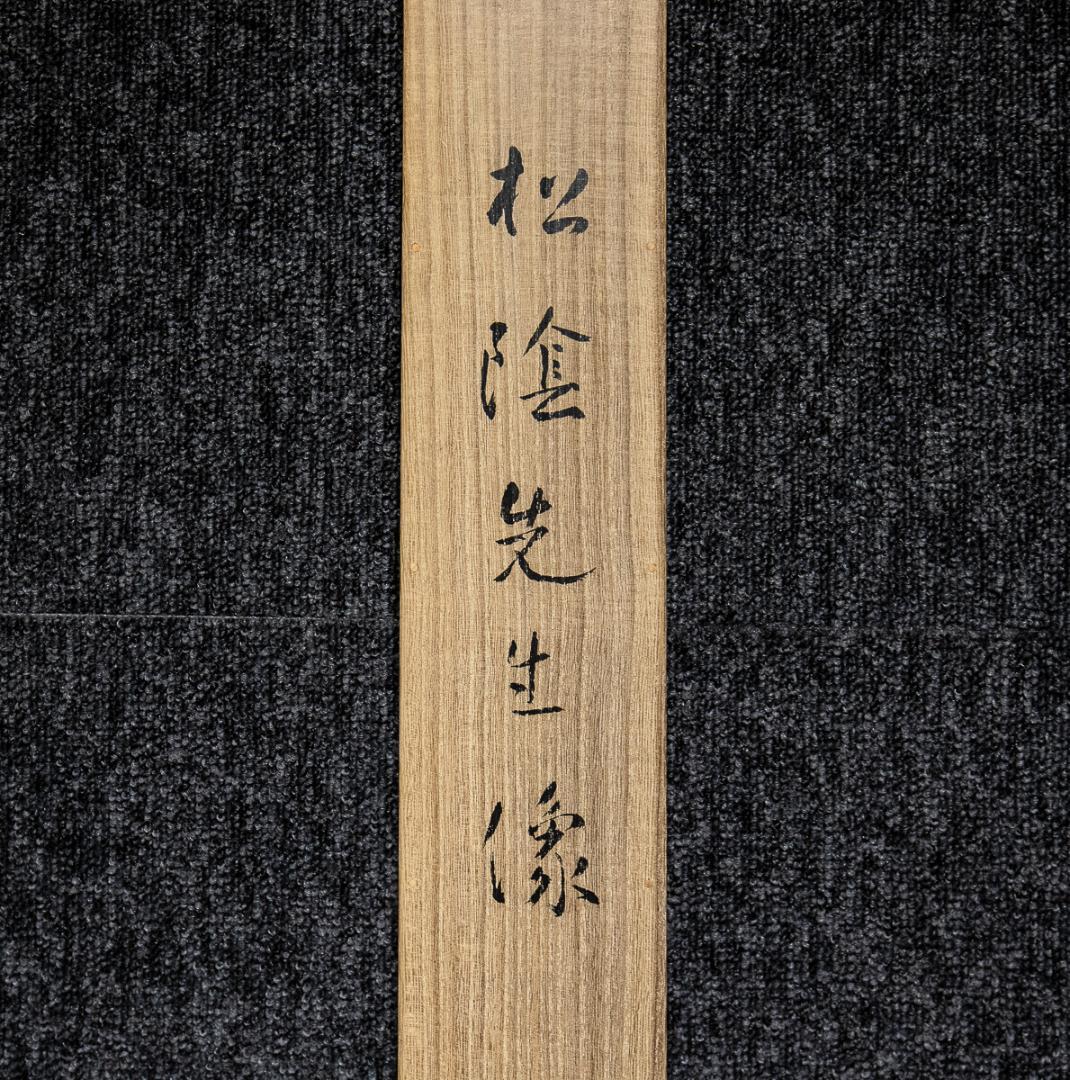 松陰先生像